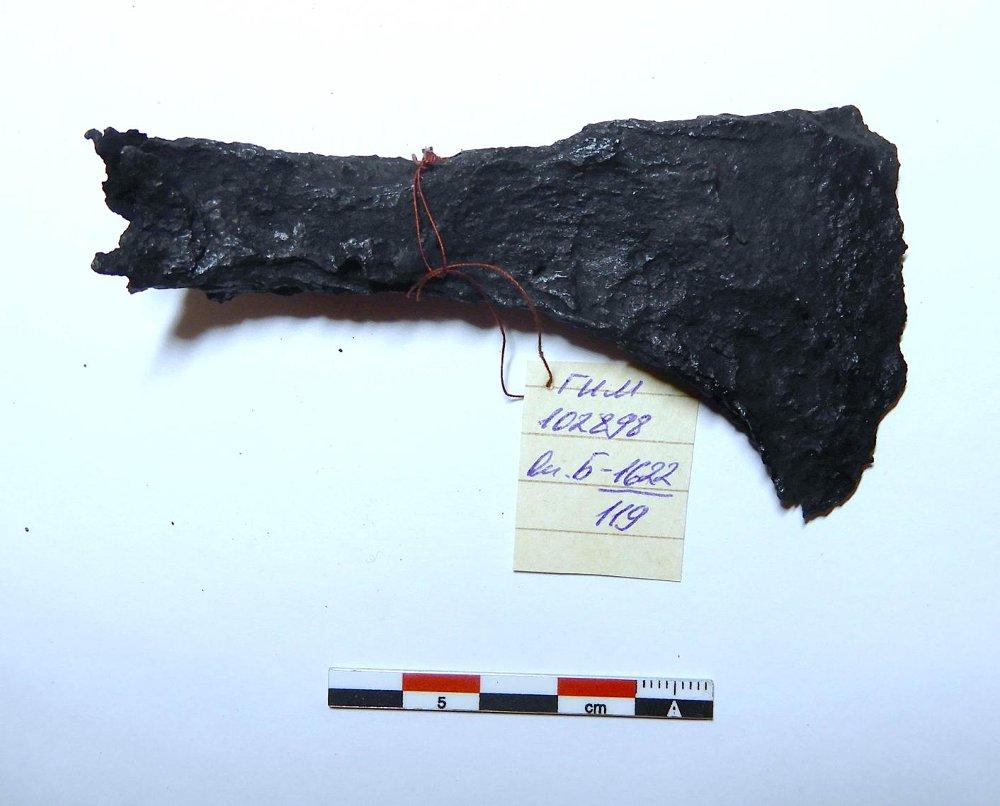 ГИМ
102898
оп. Б-1622
119
5 cm